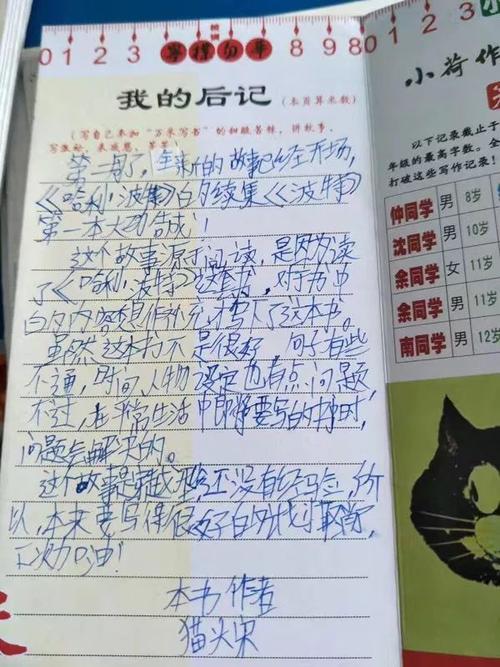 0 1 2 3 8 9 8
0 1 2 3
我的后记(本页算米数)
(写自己参加“万米写书”的酸甜苦辣,讲故事,
写激动,来感恩,
第一母了,全新的故事已经开场,
《哈利·波特》的续集《波特》
第一本大功告成!
这个故事源于阅读,是因为读
了《哈利·波特》这套书,对于书中
的内容想作补充,才写下了这本书。
虽然这本书不是很好,句子有些
不通,时间、人物设定也有点问题,
不过,在平常生活中即将要写的书时,
问题会解决的。
这个故事是穿越型,还没有经验,所
以,本来要写得很好的计划取消,
加油!
本书作者
猫头果
小荷作
以下记录截止于
年级的最高字数。全
打破这些写作记录!
仲同学 男 8岁
沈同学 男 10岁
余同学 女 11岁
余同学 男 11岁
南同学 男 12岁